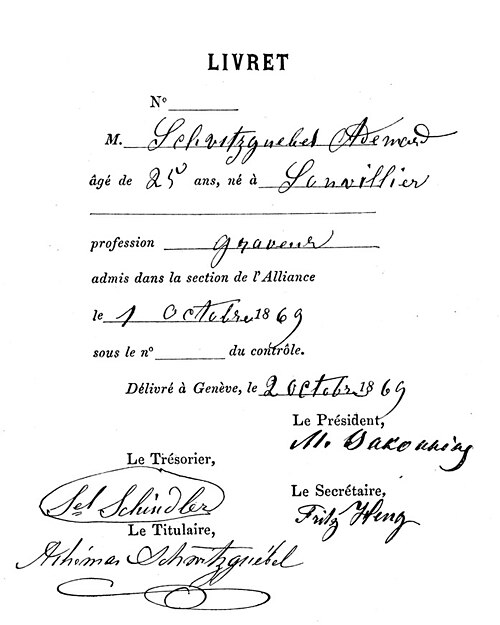 LIVRET
N°
M. Schwitzguebel Adémard
âgé de 25 ans, né à Sonvillier
profession graveur
admis dans la section de l'Alliance
le 1 Octobre 1869
sous le n° du contrôle.
Délivré à Genève, le 2 octobre 1869
Le Président,
M. Bakounine
Le Trésorier,
Schindler
Le Secrétaire,
Fritz Heng
Le Titulaire,
Adhémar Schwitzguébel